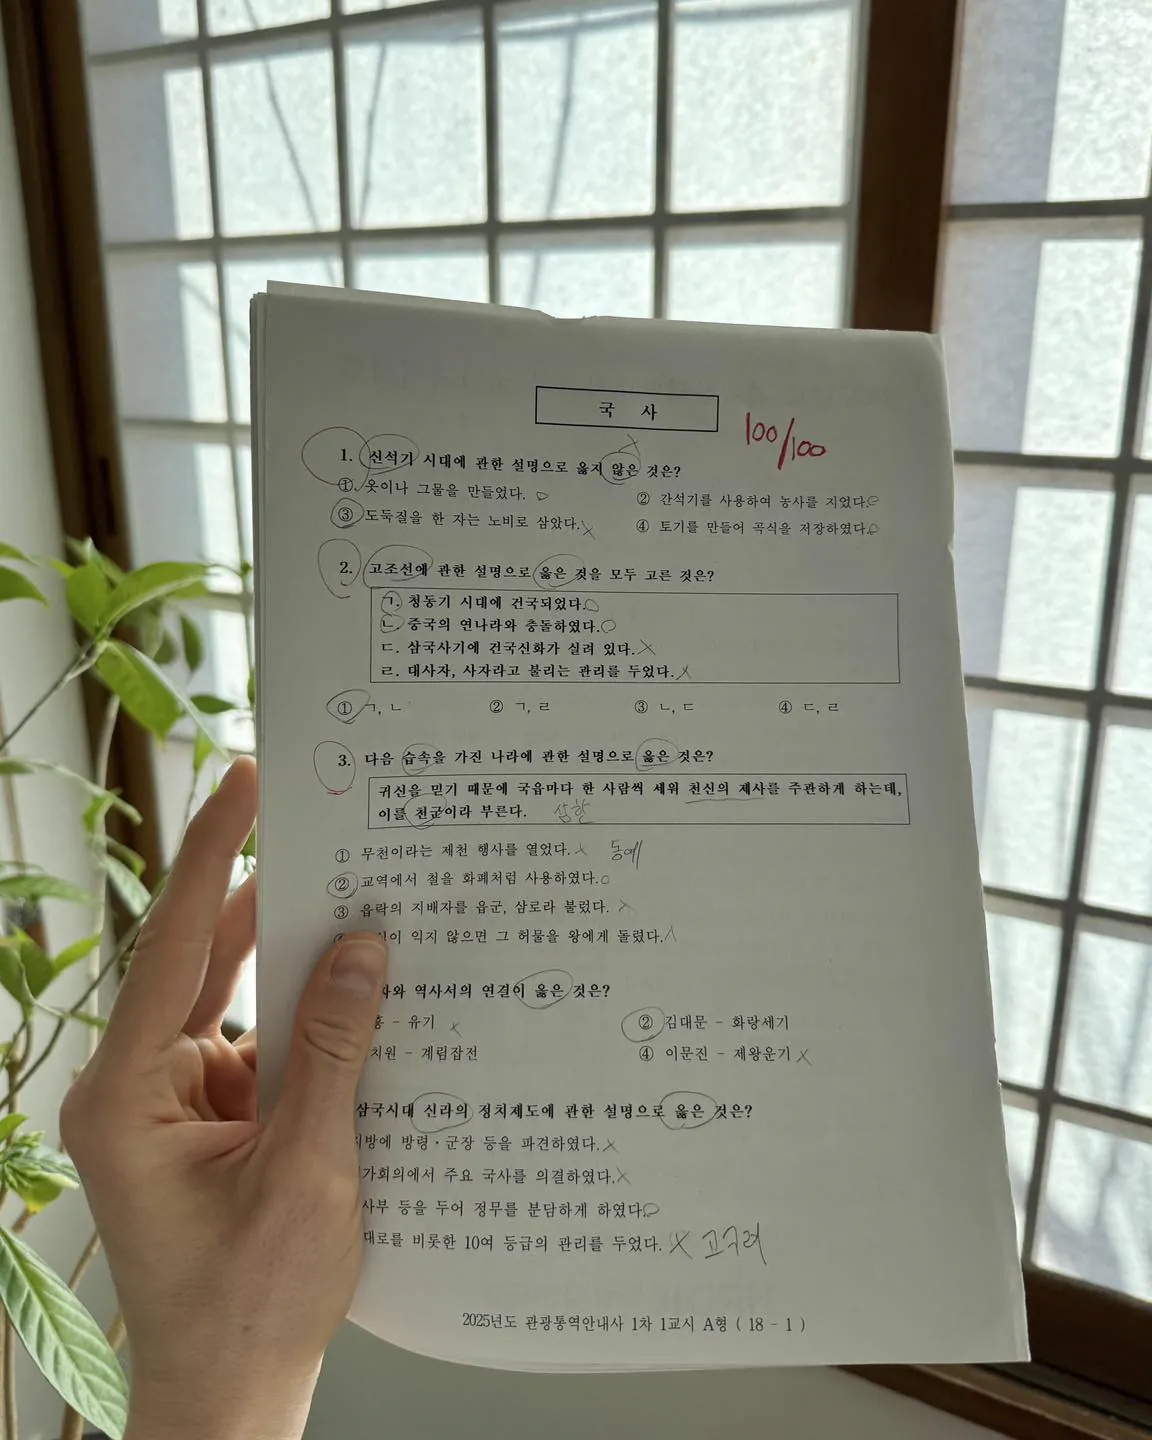 국 사
100/100
1. 신석기 시대에 관한 설명으로 옳지 않은 것은?
① 옷이나 그물을 만들었다.
② 간석기를 사용하여 농사를 지었다.
③ 도둑질을 한 자는 노비로 삼았다.
④ 토기를 만들어 곡식을 저장하였다.
2. 고조선에 관한 설명으로 옳은 것을 모두 고른 것은?
ㄱ. 청동기 시대에 건국되었다.
ㄴ. 중국의 연나라와 충돌하였다.
ㄷ. 삼국사기에 건국신화가 실려 있다.
ㄹ. 대사자, 사자라고 불리는 관리를 두었다.
① ㄱ, ㄴ ② ㄱ, ㄹ ③ ㄴ, ㄷ ④ ㄷ, ㄹ
3. 다음 습속을 가진 나라에 관한 설명으로 옳은 것은?
귀신을 믿기 때문에 국읍마다 한 사람씩 세워 천신의 제사를 주관하게 하는데,
이를 천군이라 부른다. 삼한
① 무천이라는 제천 행사를 열었다. 동예
② 교역에서 철을 화폐처럼 사용하였다.
③ 읍락의 지배자를 읍군, 삼로라 불렀다.
익지 않으면 그 허물을 왕에게 돌렸다.
역사서의 연결이 옳은 것은?
- 유기
② 김대문 - 화랑세기
치원 - 계림잡전
④ 이문진 - 제왕운기
삼국시대 신라의 정치제도에 관한 설명으로 옳은 것은?
방에 방령·군장 등을 파견하였다.
가회의에서 주요 국사를 의결하였다.
사부 등을 두어 정무를 분담하게 하였다.
대로를 비롯한 10여 등급의 관리를 두었다. 고구려
2025년도 관광통역안내사 1차 1교시 A형 ( 18 - 1 )